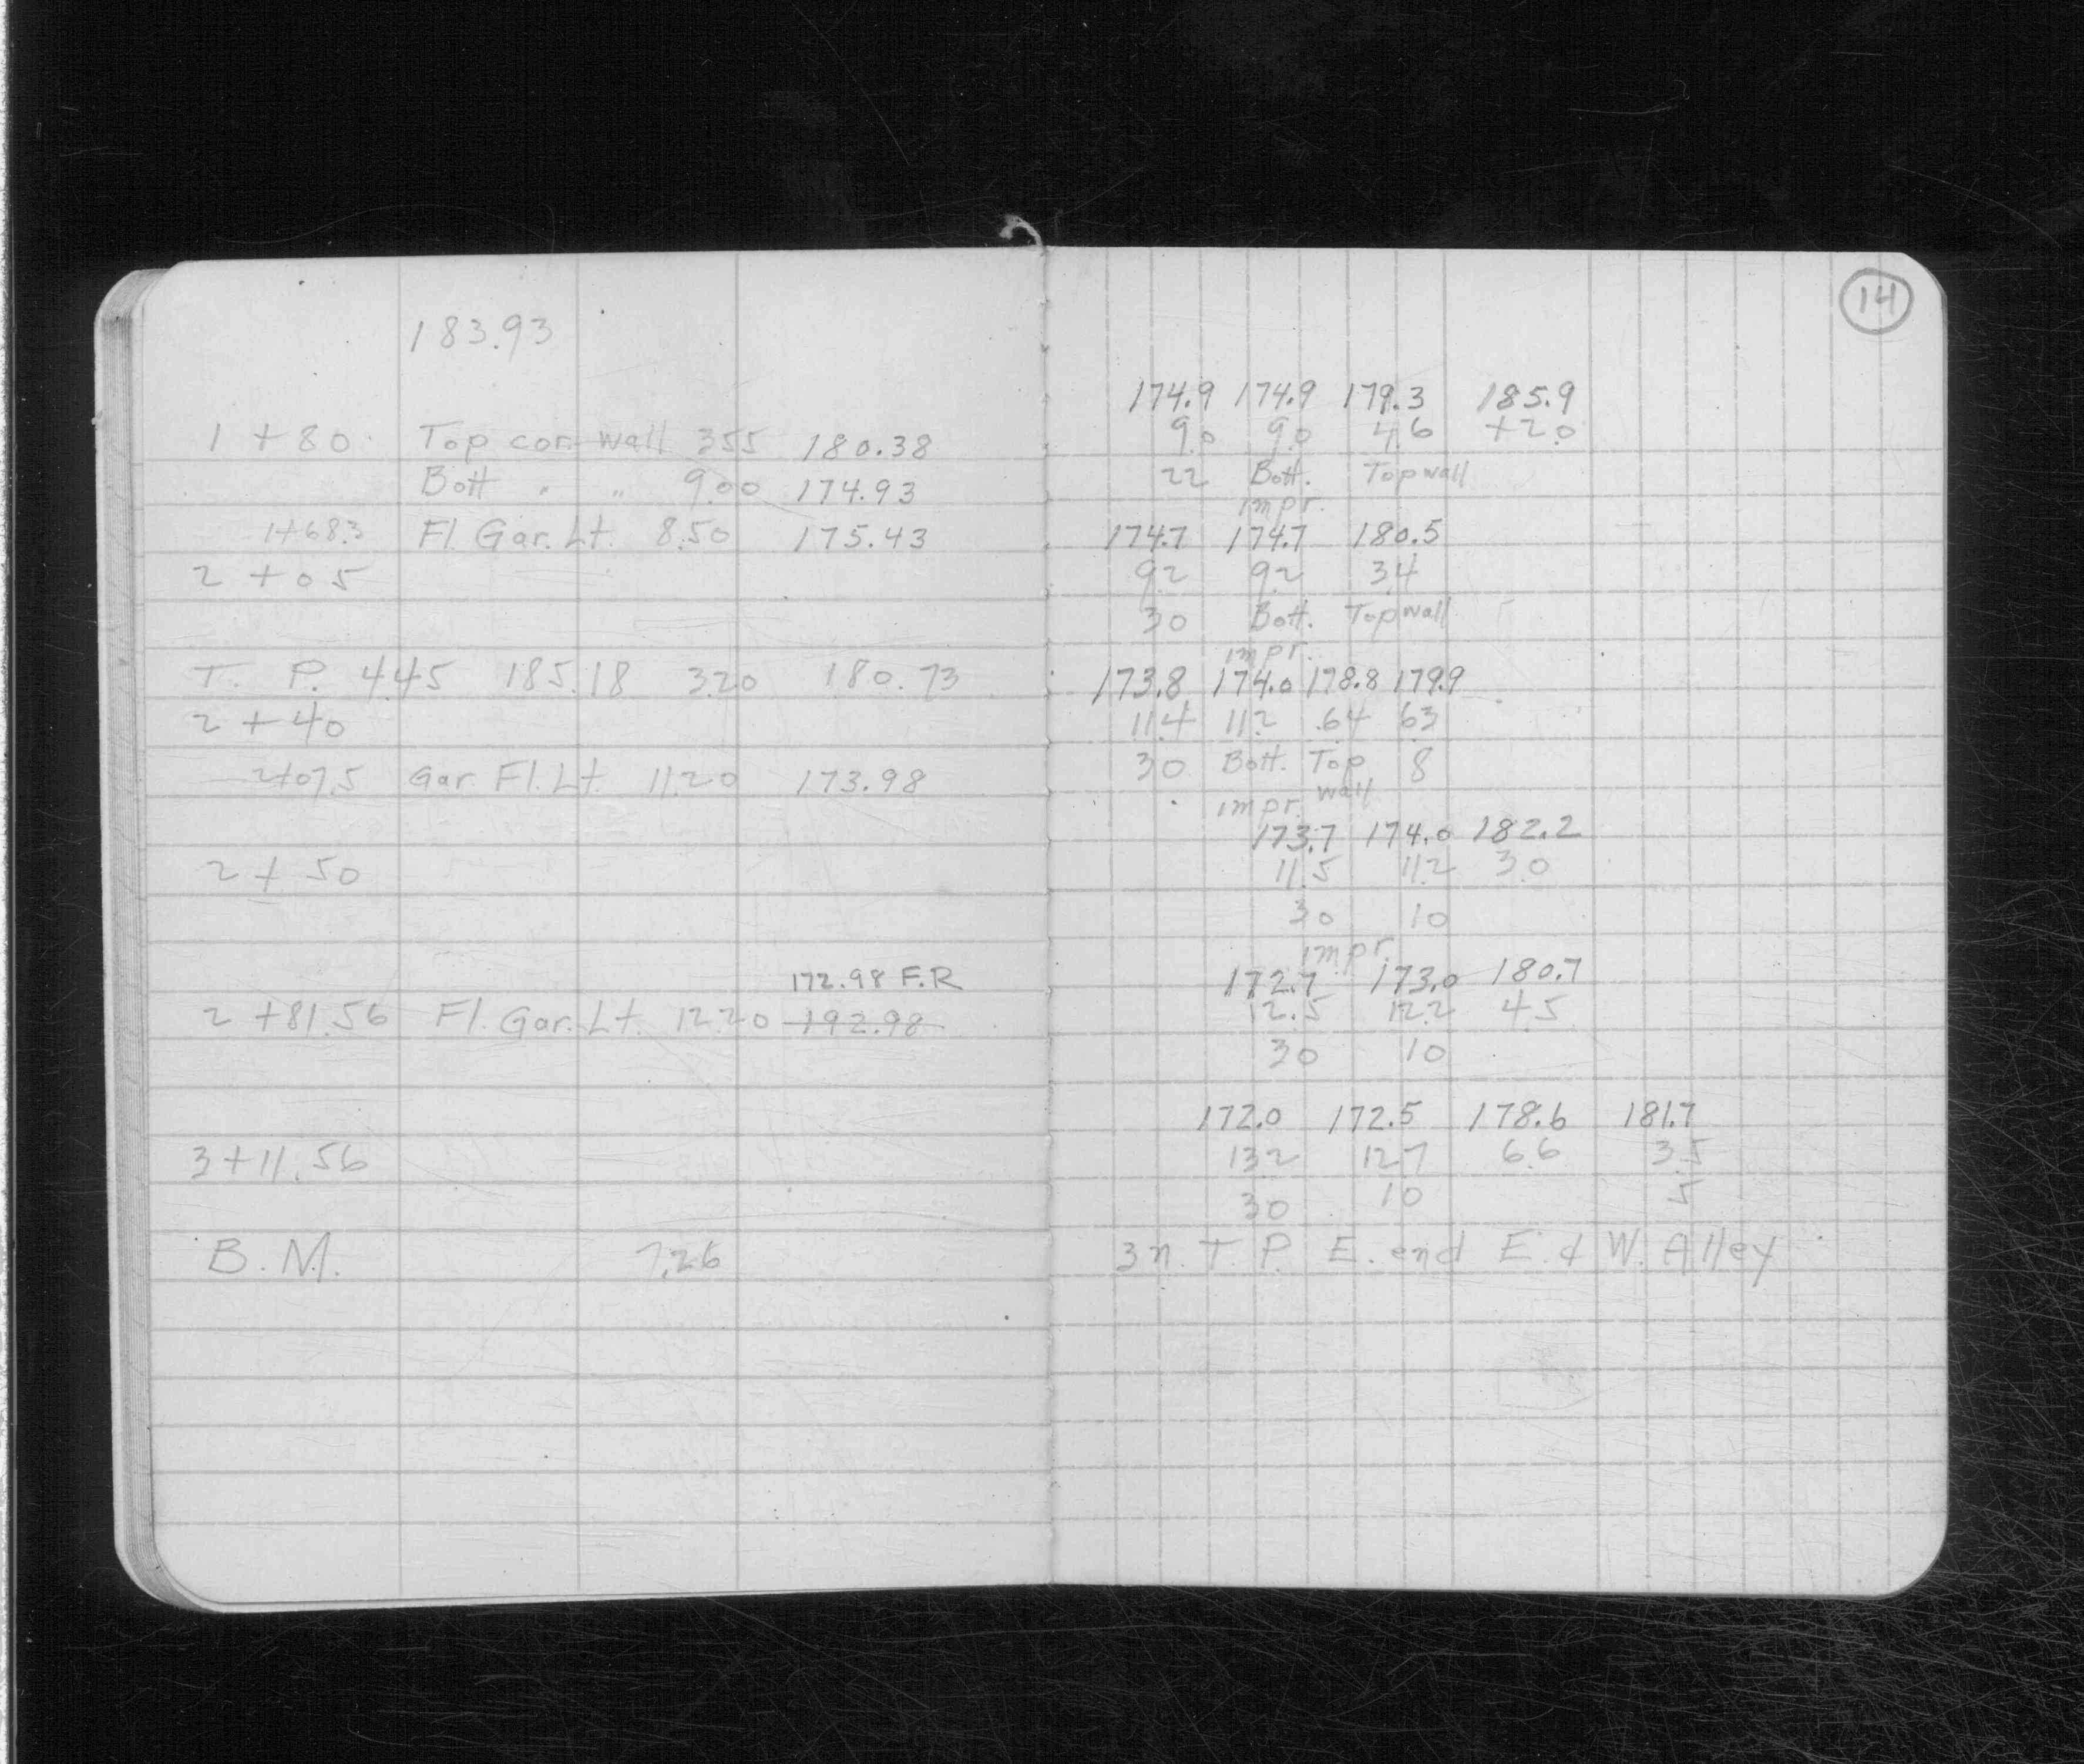 183.93
1 + 80 Top con. wall 355 180.38
Bott " " 9.00 174.93
1+68.3 Fl. Gar. Lt. 8.50 175.43
2 + 05
T. P. 4.45 185.18 3.20 180.73
2 + 40
2+07.5 Gar. Fl. Lt. 11.20 173.98
2 + 50
172.98 F.R
2 +81.56 Fl. Gar. Lt. 12.20 192.98
3+11.56
B.M. 7.26
14
174.9 174.9 179.3 185.9
9.0 9.0 4.6 +2.0
22 Bott. Top wall
impr.
174.7 174.7 180.5
92 92 34
30 Bott. Top wall
impr.
173.8 174.0 178.8 179.9
11.4 11.2 .64 63
30 Bott. Top 8
impr. wall
173.7 174.0 182.2
11.5 11.2 3.0
30 10
impr.
172.7 173.0 180.7
12.5 12.2 4.5
30 10
172.0 172.5 178.6 181.7
132 127 6.6 3.5
30 10 5
3n. T. P. E. end E. & W. Alley